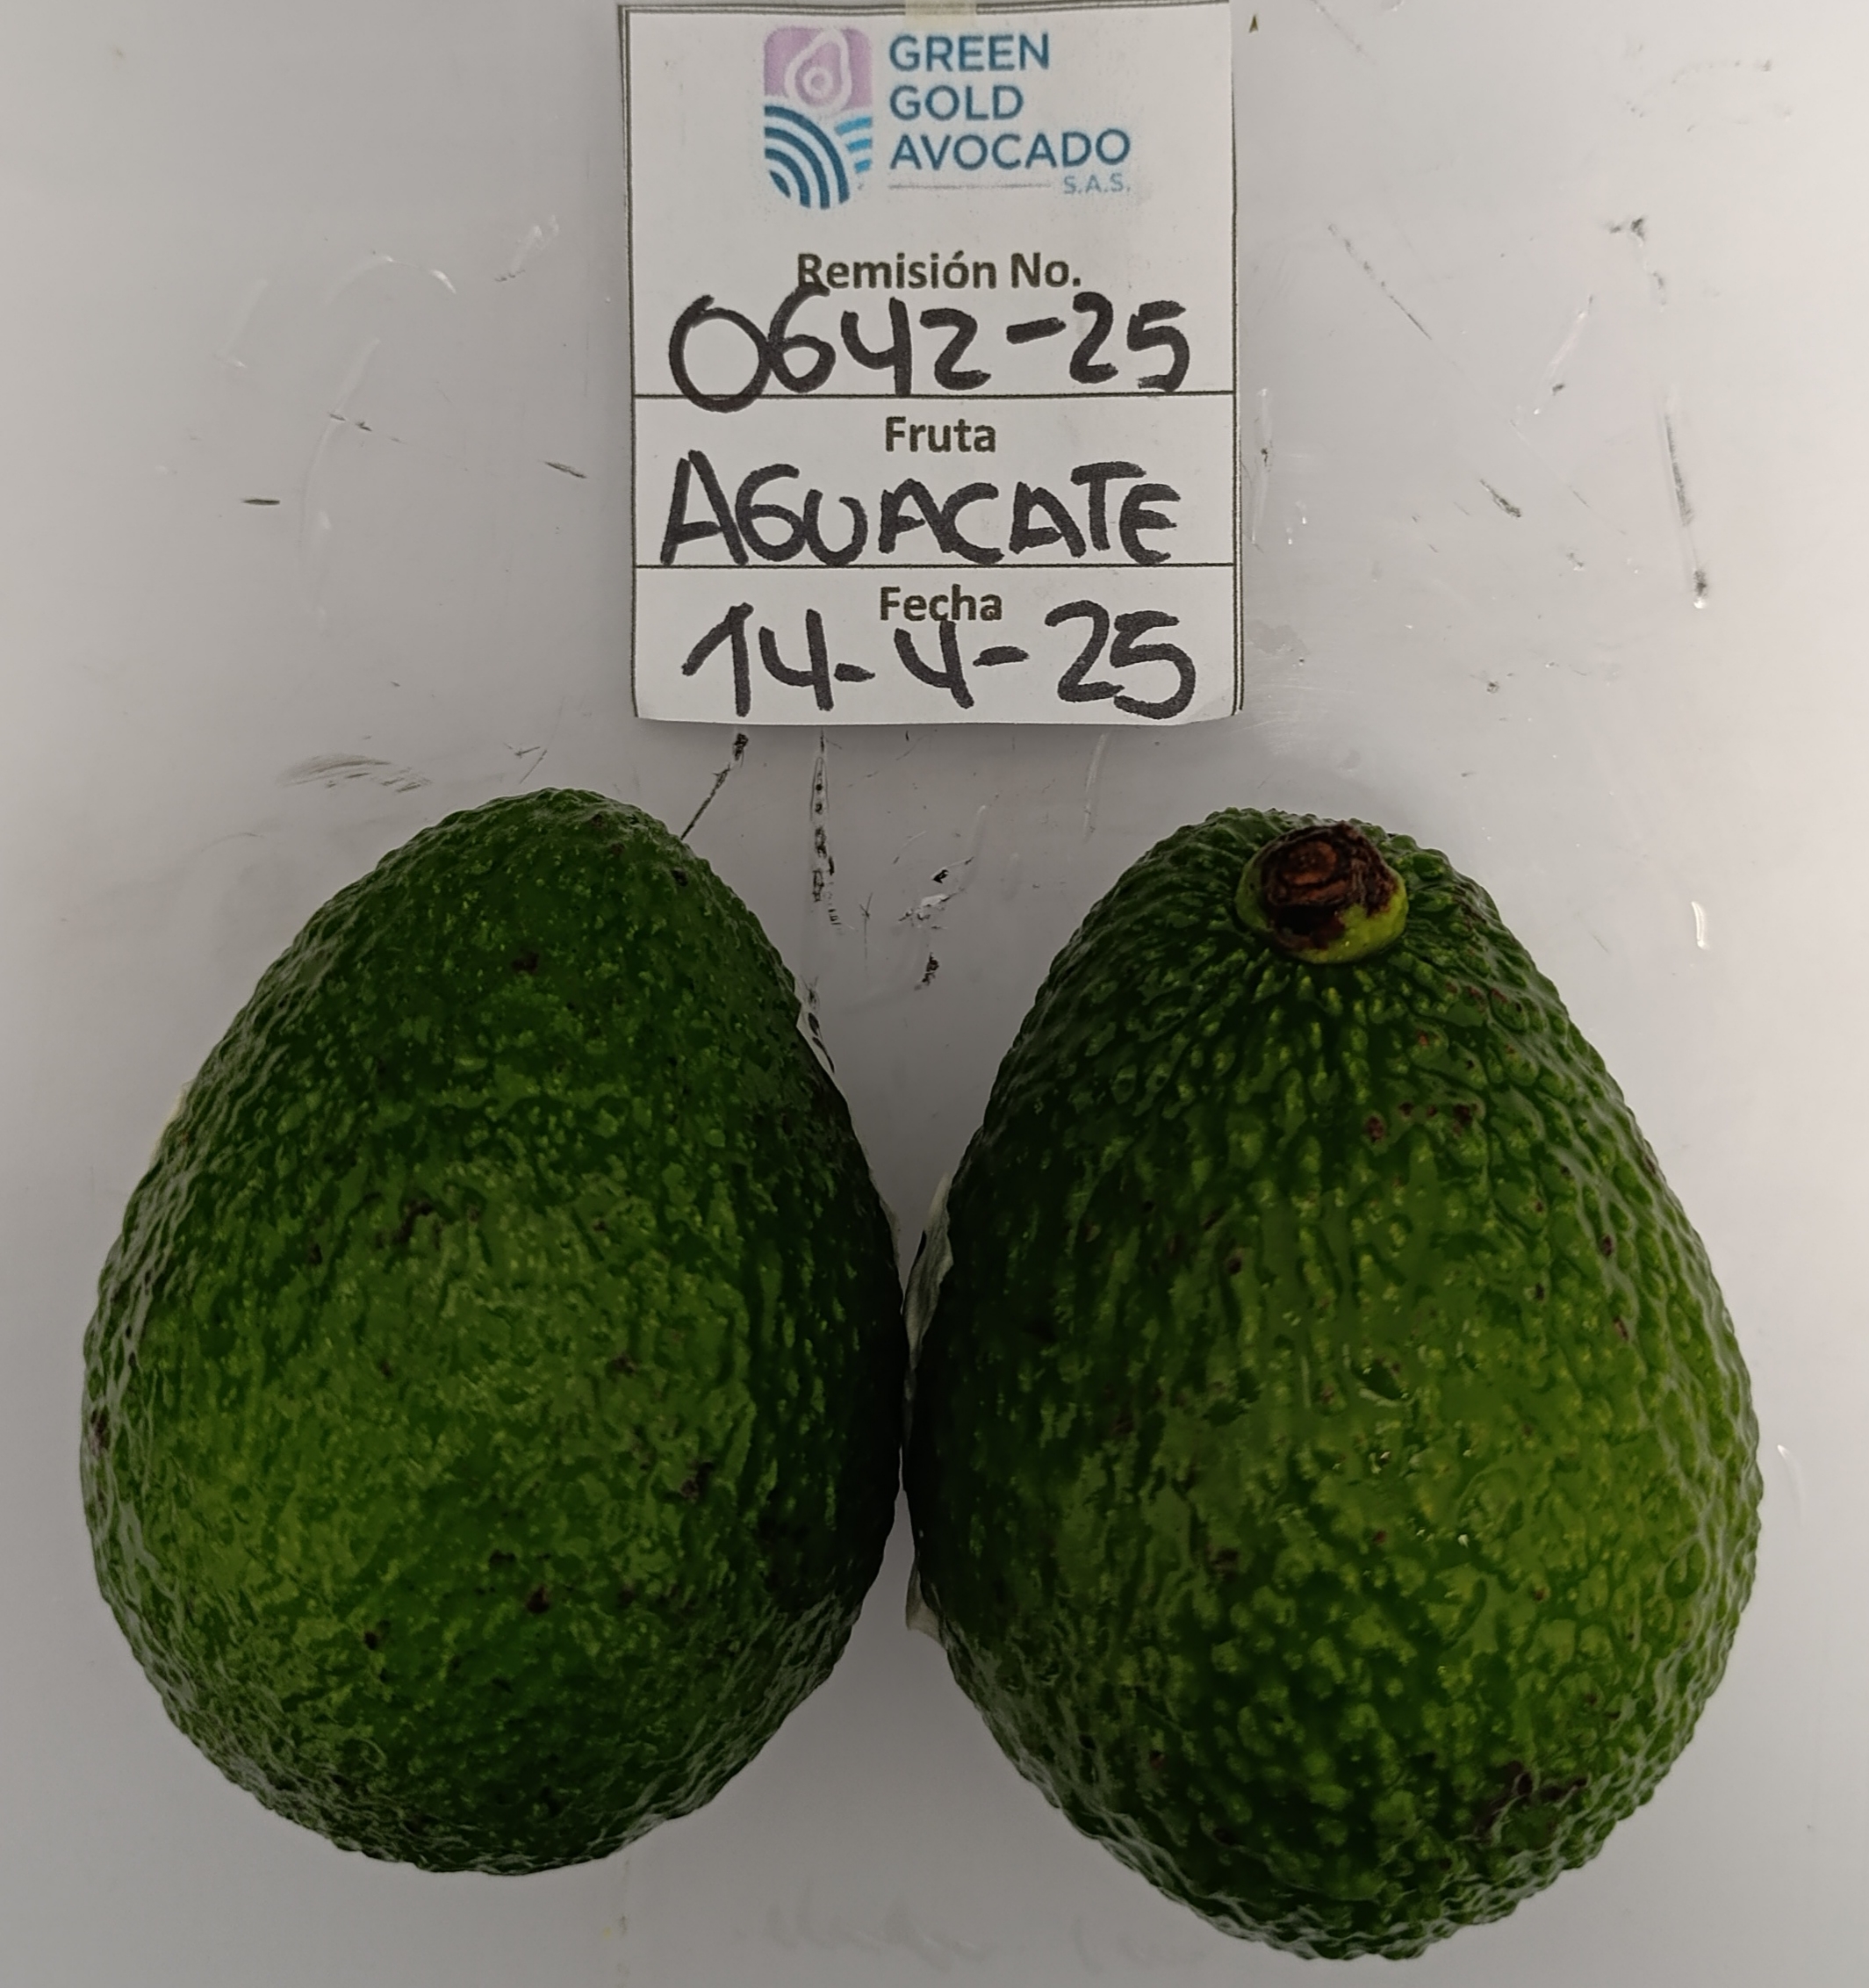 GREEN
GOLD
AVOCADO
S.A.S.
Remisión No.
0642-25
Fruta
AGUACATE
Fecha
14-4-25